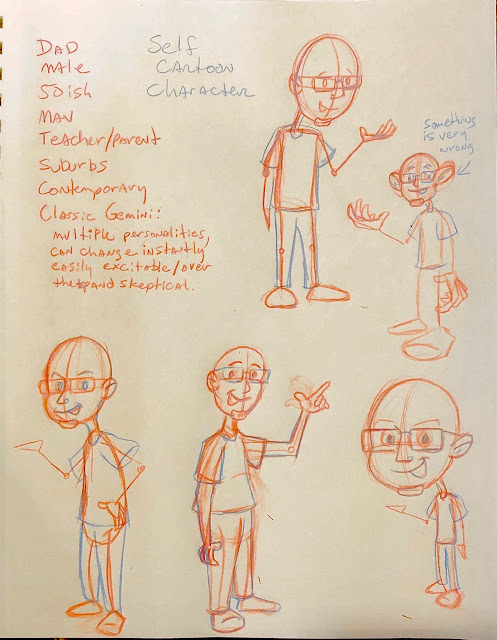 DAD
MALE
50ish
MAN
Teacher/parent
Suburbs
Contemporary
Classic Gemini:
multiple personalities,
can change instantly
easily excitable/over
the top and skeptical.
Self
Cartoon
Character
Something
is very
wrong